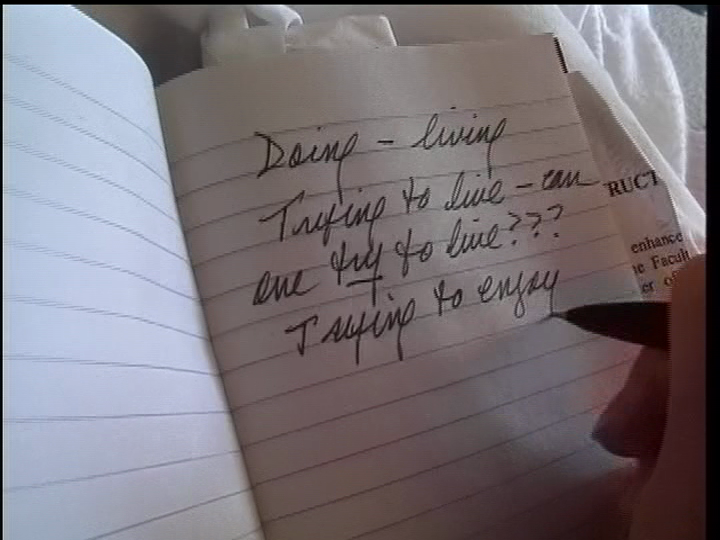 Doing - living
Trying to live - can
one try to live???
Trying to enjoy
RUCT
enhance
e Facult
er of